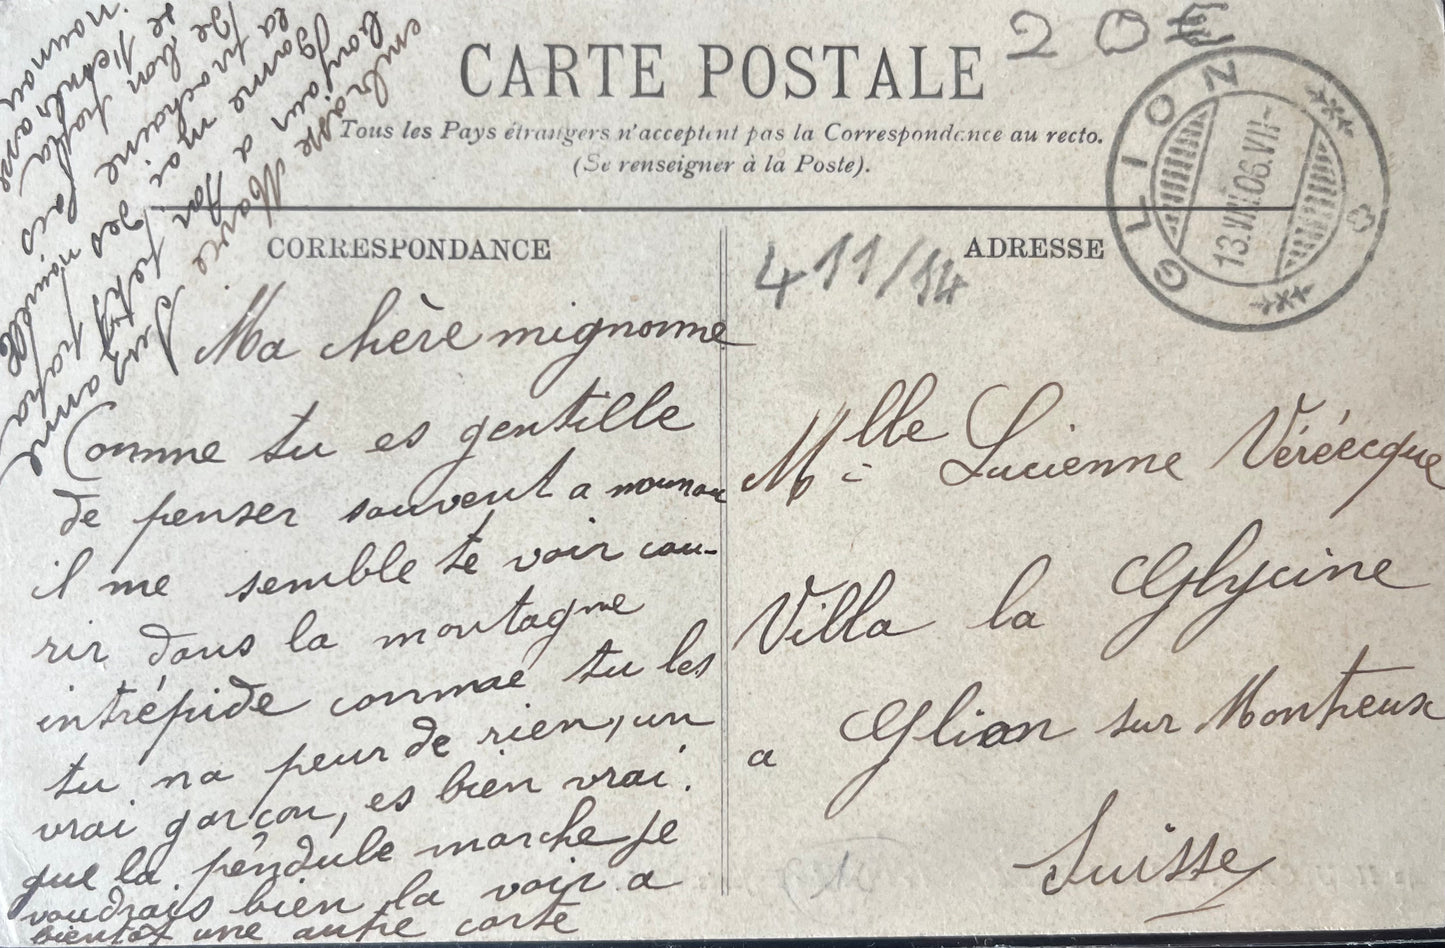 CARTE POSTALE
20€
Tous les Pays étrangers n'acceptent pas la Correspondance au recto.
(Se renseigner à la Poste).
CORRESPONDANCE
ADRESSE
411/14
GLION
13.VIII.06.VII-
Ma chère mignonne
Comme tu es gentille
de penser souvent a nounou
il me semble te voir cou-
rir dans la montagne
intrépide comme tu les
tu na peur de rien, un
vrai garçon, es bien vrai.
que la pendule marche je
voudrais bien la voir a
bientôt une autre carte
Mlle Lucienne Véréecque
Villa la Glycine
a Glion sur Montreux
Suisse
nounou
t'embrasse
se bon papa
la prochaine
game moi des nouvelle
bonjour a ton petit papa
embrasse Marie Suzanne